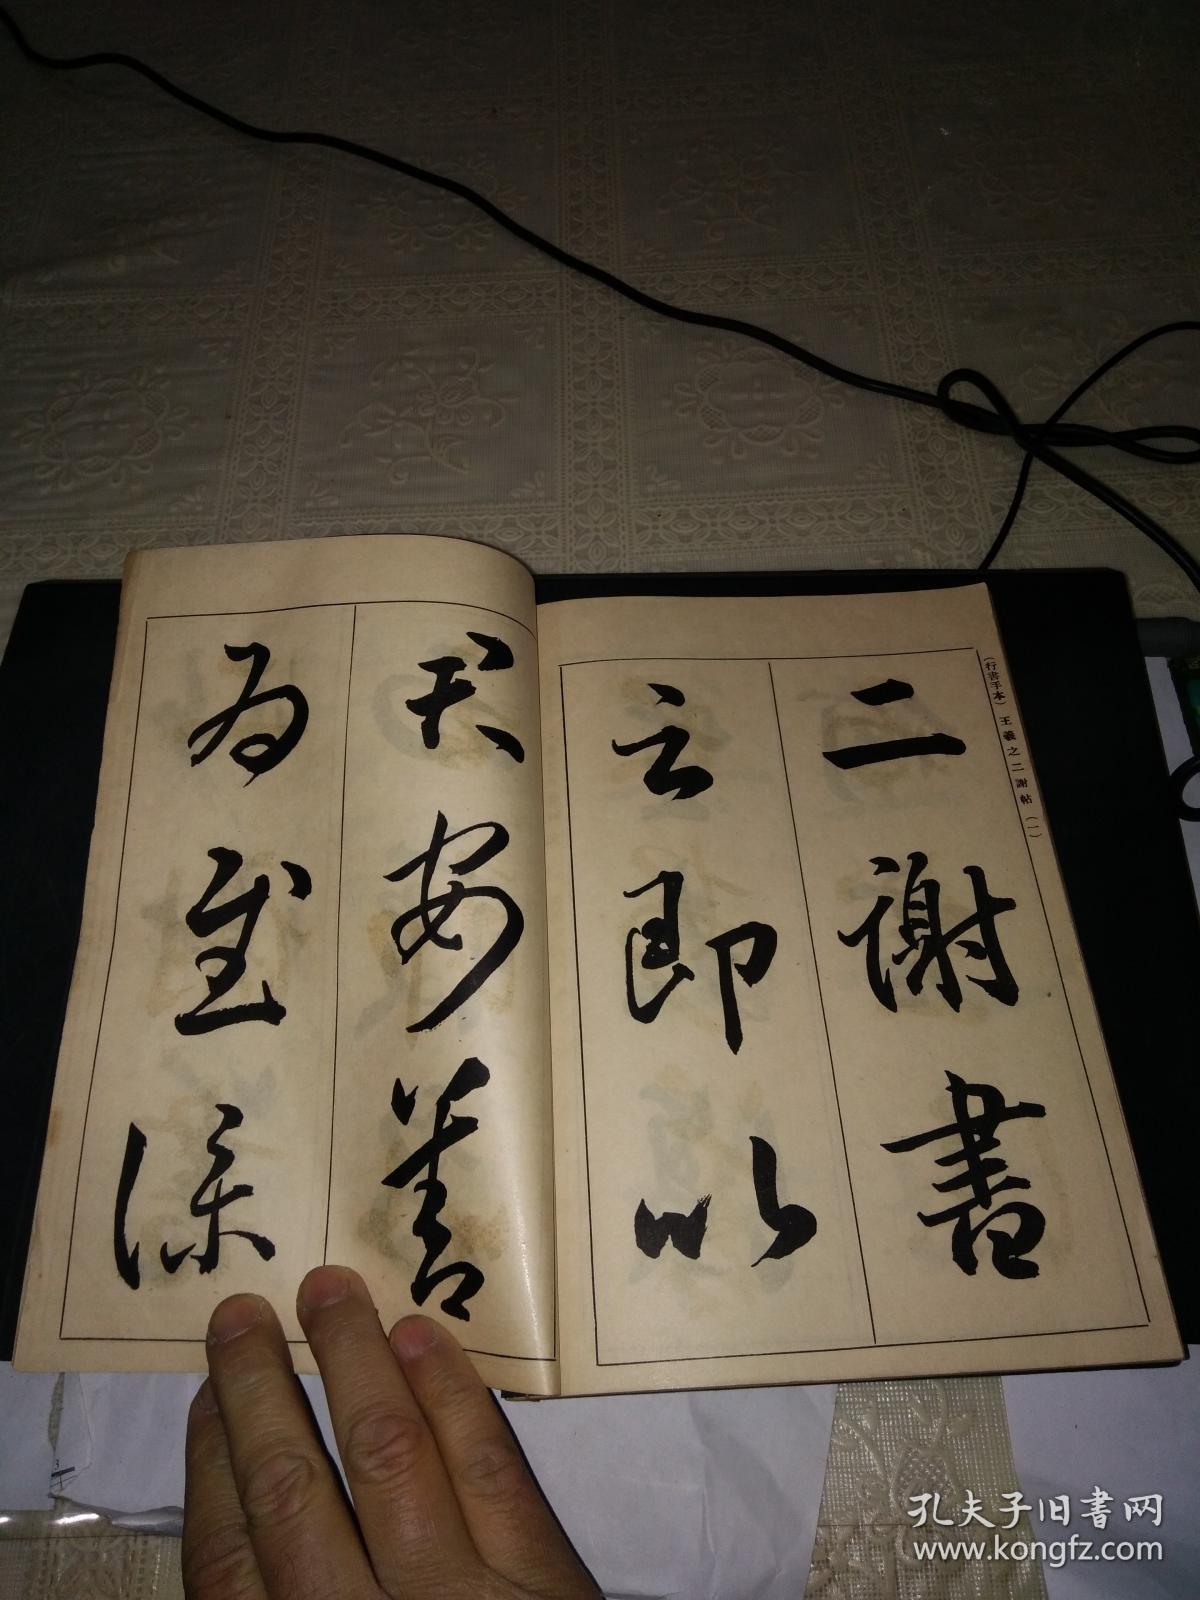 (行書手本) 王羲之二謝帖 (一)
二謝書
云即以
安善
為
孔夫子旧書网
www.kongfz.com